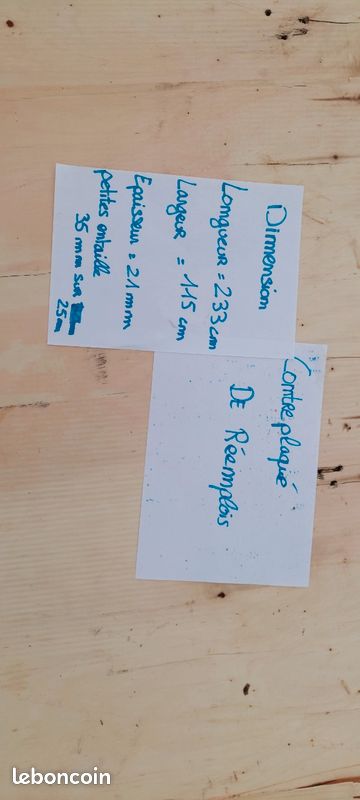 Dimension
Longueur = 233 cm
Largeur = 115 cm
Epaisseur = 21 mm
petites entaille
35 mm sur
25m
Contre plaqué
De Réemplois
leboncoin